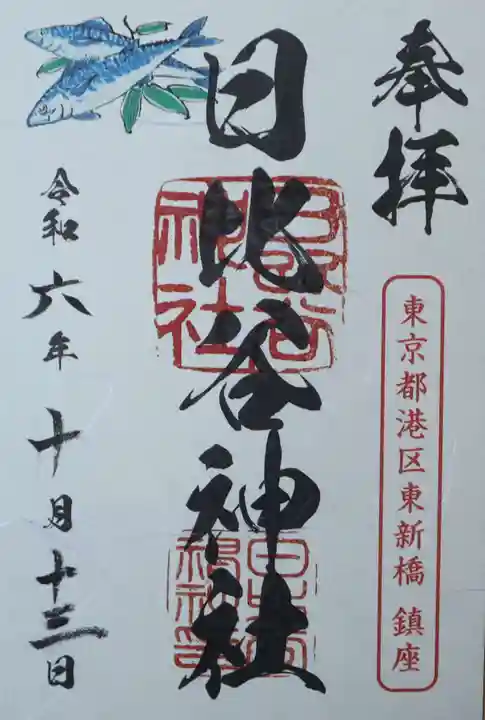 奉拝
東京都港区東新橋 鎮座
日比谷神社
日比谷神社
令和六年十月十三日